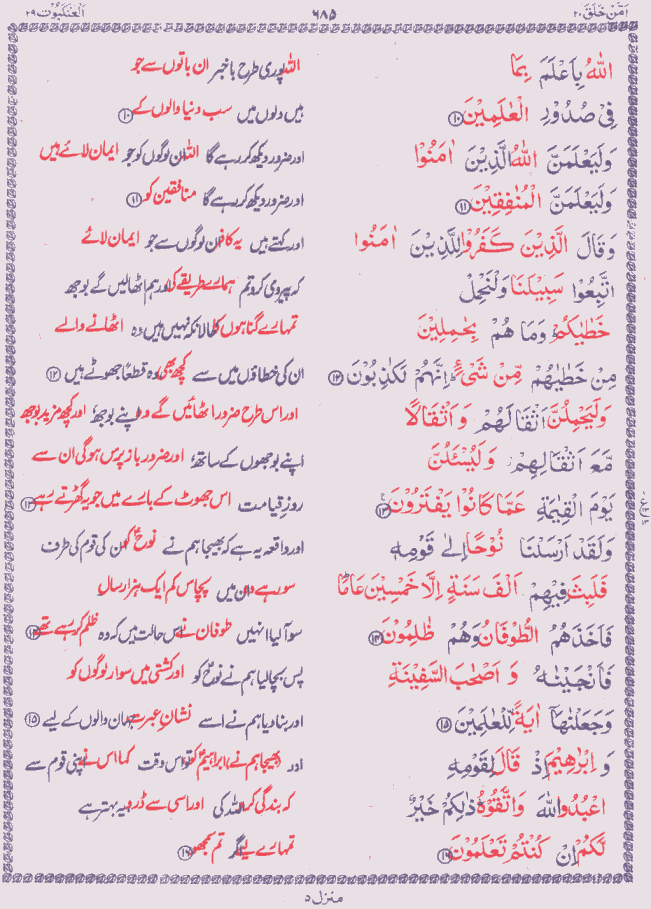 اَمَّنْ خَلَقَ ٢٠ ٦٨٥ اَلْعَنْكَبُوْت ٢٩
اللّٰهُ بِاَعْلَمَ بِمَا اللہ پوری طرح باخبر ان باتوں سے جو
فِیْ صُدُوْرِ الْعٰلَمِیْنَ ١٠ ہیں دلوں میں سب دنیا والوں کے ١٠
وَلَیَعْلَمَنَّ اللّٰهُ الَّذِیْنَ اٰمَنُوْا اور ضرور دیکھ کر رہے گا اللہ ان لوگوں کو جو ایمان لائے ہیں
وَلَیَعْلَمَنَّ الْمُنٰفِقِیْنَ ١١ اور ضرور دیکھ کر رہے گا منافقین کو ١١
وَقَالَ الَّذِیْنَ كَفَرُوْا لِلَّذِیْنَ اٰمَنُوا اور کہتے ہیں یہ کافر ان لوگوں سے جو ایمان لائے
اتَّبِعُوْا سَبِیْلَنَا وَلْنَحْمِلْ کہ پیروی کرو تم ہمارے طریقے کی اور ہم اٹھالیں گے بوجھ
خَطٰیٰكُمْ وَمَا هُمْ بِحٰمِلِیْنَ تمہارے گناہوں کا حالانکہ نہیں ہیں وہ اٹھانے والے
مِنْ خَطٰیٰهُمْ مِّنْ شَیْءٍ اِنَّهُمْ لَكٰذِبُوْنَ ١٢ ان کی خطاؤں میں سے کچھ بھی وہ قطعاً جھوٹے ہیں ١٢
وَلَیَحْمِلُنَّ اَثْقَالَهُمْ وَاَثْقَالًا اور اس طرح ضرور اٹھائیں گے وہ اپنے بوجھ اور کچھ مزید بوجھ
مَّعَ اَثْقَالِهِمْ وَلَیُسْـَٔلُنَّ اپنے بوجھوں کے ساتھ اور ضرور باز پرس ہوگی ان سے
یَوْمَ الْقِیٰمَةِ عَمَّا كَانُوْا یَفْتَرُوْنَ ١٣ روز قیامت اس جھوٹ کے بارے میں جو یہ گھڑتے رہے ١٣
وَلَقَدْ اَرْسَلْنَا نُوْحًا اِلٰی قَوْمِهٖ اور واقعہ یہ ہے کہ بھیجا ہم نے نوحؑ کو ان کی قوم کی طرف
فَلَبِثَ فِیْهِمْ اَلْفَ سَنَةٍ اِلَّا خَمْسِیْنَ عَامًا سو رہے وہ ان میں پچاس کم ایک ہزار سال
فَاَخَذَهُمُ الطُّوْفَانُ وَهُمْ ظٰلِمُوْنَ ١٤ سو آلیا انہیں طوفان نے اس حالت میں کہ وہ ظلم کر رہے تھے ١٤
فَاَنْجَیْنٰهُ وَ اَصْحٰبَ السَّفِیْنَةِ پس بچالیا ہم نے نوحؑ کو اور کشتی میں سوار لوگوں کو
وَجَعَلْنٰهَاۤ اٰیَةً لِّلْعٰلَمِیْنَ ١٥ اور بنا دیا ہم نے اسے نشان عبرت جہان والوں کے لیے ١٥
وَ اِبْرٰهِیْمَ اِذْ قَالَ لِقَوْمِهِ اور بھیجا ہم نے ابراہیمؑ کو تو اس وقت کہا اس نے اپنی قوم سے
اعْبُدُوا اللّٰهَ وَاتَّقُوْهُ ذٰلِكُمْ خَیْرٌ کہ بندگی کرو اللہ کی اور اسی سے ڈرو یہ بہتر ہے
لَّكُمْ اِنْ كُنْتُمْ تَعْلَمُوْنَ ١٦ تمہارے لیے اگر تم سمجھو ١٦
منزل ٥